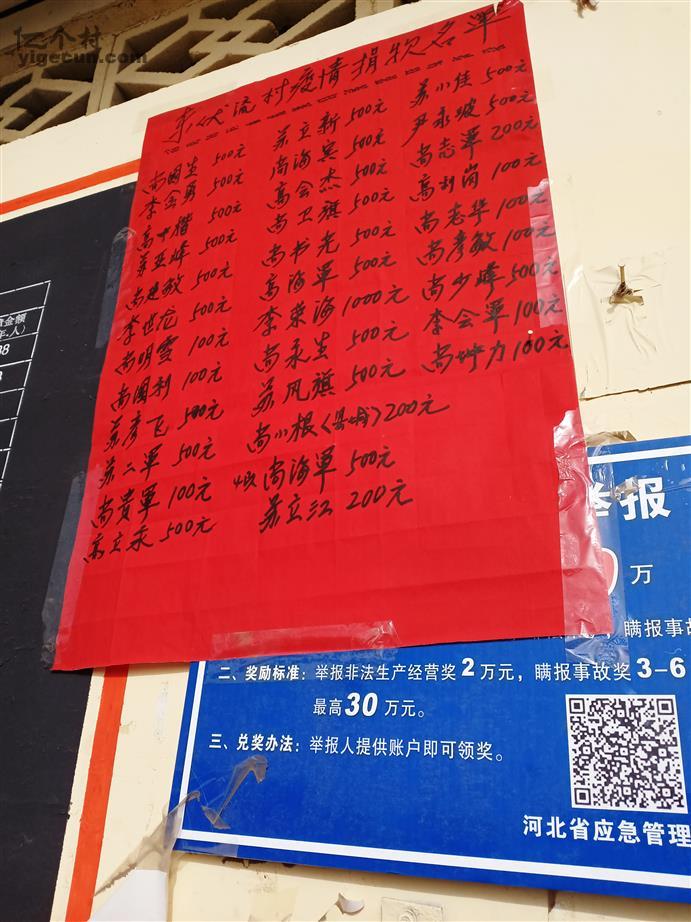 亿个村
yigecun.com
东伏流村疫情捐款名单
尚国生 500元
李金勇 500元
高中楷 500元
苏亚峰 500元
尚建敏 500元
李世龙 500元
尚明雪 100元
尚国利 100元
苏彦飞 500元
苏二軍 500元
尚貴軍 100元
高立永 500元
苏立新 500元
尚海宾 500元
高会杰 500元
尚卫旗 500元
尚书光 500元
高海軍 500元
李荣海 1000元
尚永生 500元
苏风旗 500元
尚小根〈县城〉200元
4队 尚海軍 500元
苏立江 200元
苏小佳 500元
尹永坡 500元
尚志軍 200元
高利岗 100元
尚志华 100元
尚彦敏 100元
尚少峰 500元
李会軍 100元
尚坤力 100元
金额
年.人)
举报
万
瞒报事故
二、奖励标准：举报非法生产经营奖2万元，瞒报事故奖3-6
最高30万元。
三、兑奖办法：举报人提供账户即可领奖。
河北省应急管理